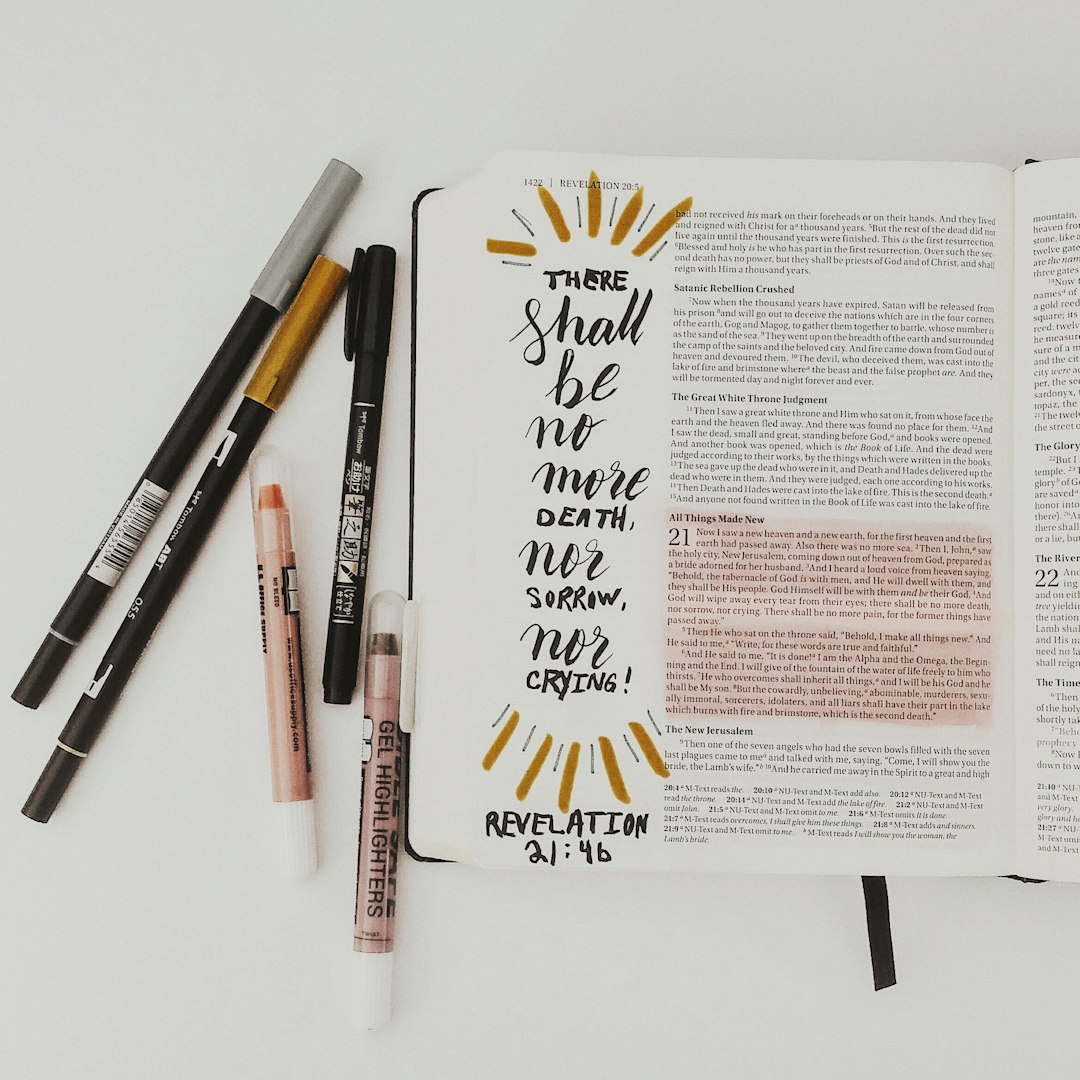 1422 | REVELATION 20:5
THERE
shall
be
no
more
DEATH,
nor
SORROW,
nor
CRYING!
REVELATION
21:4b
had not received his mark on their foreheads or on their hands. And they lived
and reigned with Christ for a thousand years. 5But the rest of the dead did not
live again until the thousand years were finished. This is the first resurrection.
6Blessed and holy is he who has part in the first resurrection. Over such the sec-
ond death has no power, but they shall be priests of God and of Christ, and shall
reign with Him a thousand years.
Satanic Rebellion Crushed
7Now when the thousand years have expired, Satan will be released from
his prison 8and will go out to deceive the nations which are in the four corners
of the earth, Gog and Magog, to gather them together to battle, whose number is
as the sand of the sea. 9They went up on the breadth of the earth and surrounded
the camp of the saints and the beloved city. And fire came down from God out of
heaven and devoured them. 10The devil, who deceived them, was cast into the
lake of fire and brimstone where the beast and the false prophet are. And they
will be tormented day and night forever and ever.
The Great White Throne Judgment
11Then I saw a great white throne and Him who sat on it, from whose face the
earth and the heaven fled away. And there was found no place for them. 12And
I saw the dead, small and great, standing before God, and books were opened.
And another book was opened, which is the Book of Life. And the dead were
judged according to their works, by the things which were written in the books.
13The sea gave up the dead who were in it, and Death and Hades delivered up the
dead who were in them. And they were judged, each one according to his works.
14Then Death and Hades were cast into the lake of fire. This is the second death.
15And anyone not found written in the Book of Life was cast into the lake of fire.
All Things Made New
21 Now I saw a new heaven and a new earth, for the first heaven and the first
earth had passed away. Also there was no more sea. 2Then I, John, saw
the holy city, New Jerusalem, coming down out of heaven from God, prepared as
a bride adorned for her husband. 3And I heard a loud voice from heaven saying,
"Behold, the tabernacle of God is with men, and He will dwell with them, and
they shall be His people. God Himself will be with them and be their God. 4And
God will wipe away every tear from their eyes; there shall be no more death,
nor sorrow, nor crying. There shall be no more pain, for the former things have
passed away."
5Then He who sat on the throne said, "Behold, I make all things new." And
He said to me, "Write, for these words are true and faithful."
6And He said to me, "It is done! I am the Alpha and the Omega, the Begin-
ning and the End. I will give of the fountain of the water of life freely to him who
thirsts. 7He who overcomes shall inherit all things, and I will be his God and he
shall be My son. 8But the cowardly, unbelieving, abominable, murderers, sexu-
ally immoral, sorcerers, idolaters, and all liars shall have their part in the lake
which burns with fire and brimstone, which is the second death."
The New Jerusalem
9Then one of the seven angels who had the seven bowls filled with the seven
last plagues came to me and talked with me, saying, "Come, I will show you the
bride, the Lamb's wife." 10And he carried me away in the Spirit to a great and high
20:4 M-Text reads the. 20:10 NU-Text and M-Text add also. 20:12 NU-Text and M-Text
read the throne. 20:14 NU-Text and M-Text add the lake of fire. 21:2 NU-Text and M-Text
omit John. 21:5 NU-Text and M-Text omit to me. 21:6 M-Text omits It is done.
21:7 M-Text reads overcomes, I shall give him these things. 21:8 M-Text adds and sinners.
21:9 NU-Text and M-Text omit to me. b M-Text reads I will show you the woman, the
Lamb's bride.
mountain,
heaven from
stone, like a
twelve gate
are the nam
three gates
names
a gold reed
square; its
reed: twelve
he measure
sure of a m
and the cit
city were a
per, the se
sardonyx,
topaz, the
21The twelv
the street o
The Glory
22But I
temple.
glory of G
are saved
honor into
there).
shall
or a lie, but
The River
22 And
ing
and on eith
tree yieldin
the nation
Lamb shal
and His n
need no la
shall reign
The Time
of the holy
shortly tak
7"Behol
prophecy
8Now I
down to w
21:10 NU
and M-Tex
very glory.
glory and ho
21:27 NU
M-Text om
and M-Text
Tombow
ABT
055
Tombow
筆之助
NO BLEED
U.S. OFFICE SUPPLY
www.usofficesupply.com
GEL HIGHLIGHTERS
TWIST